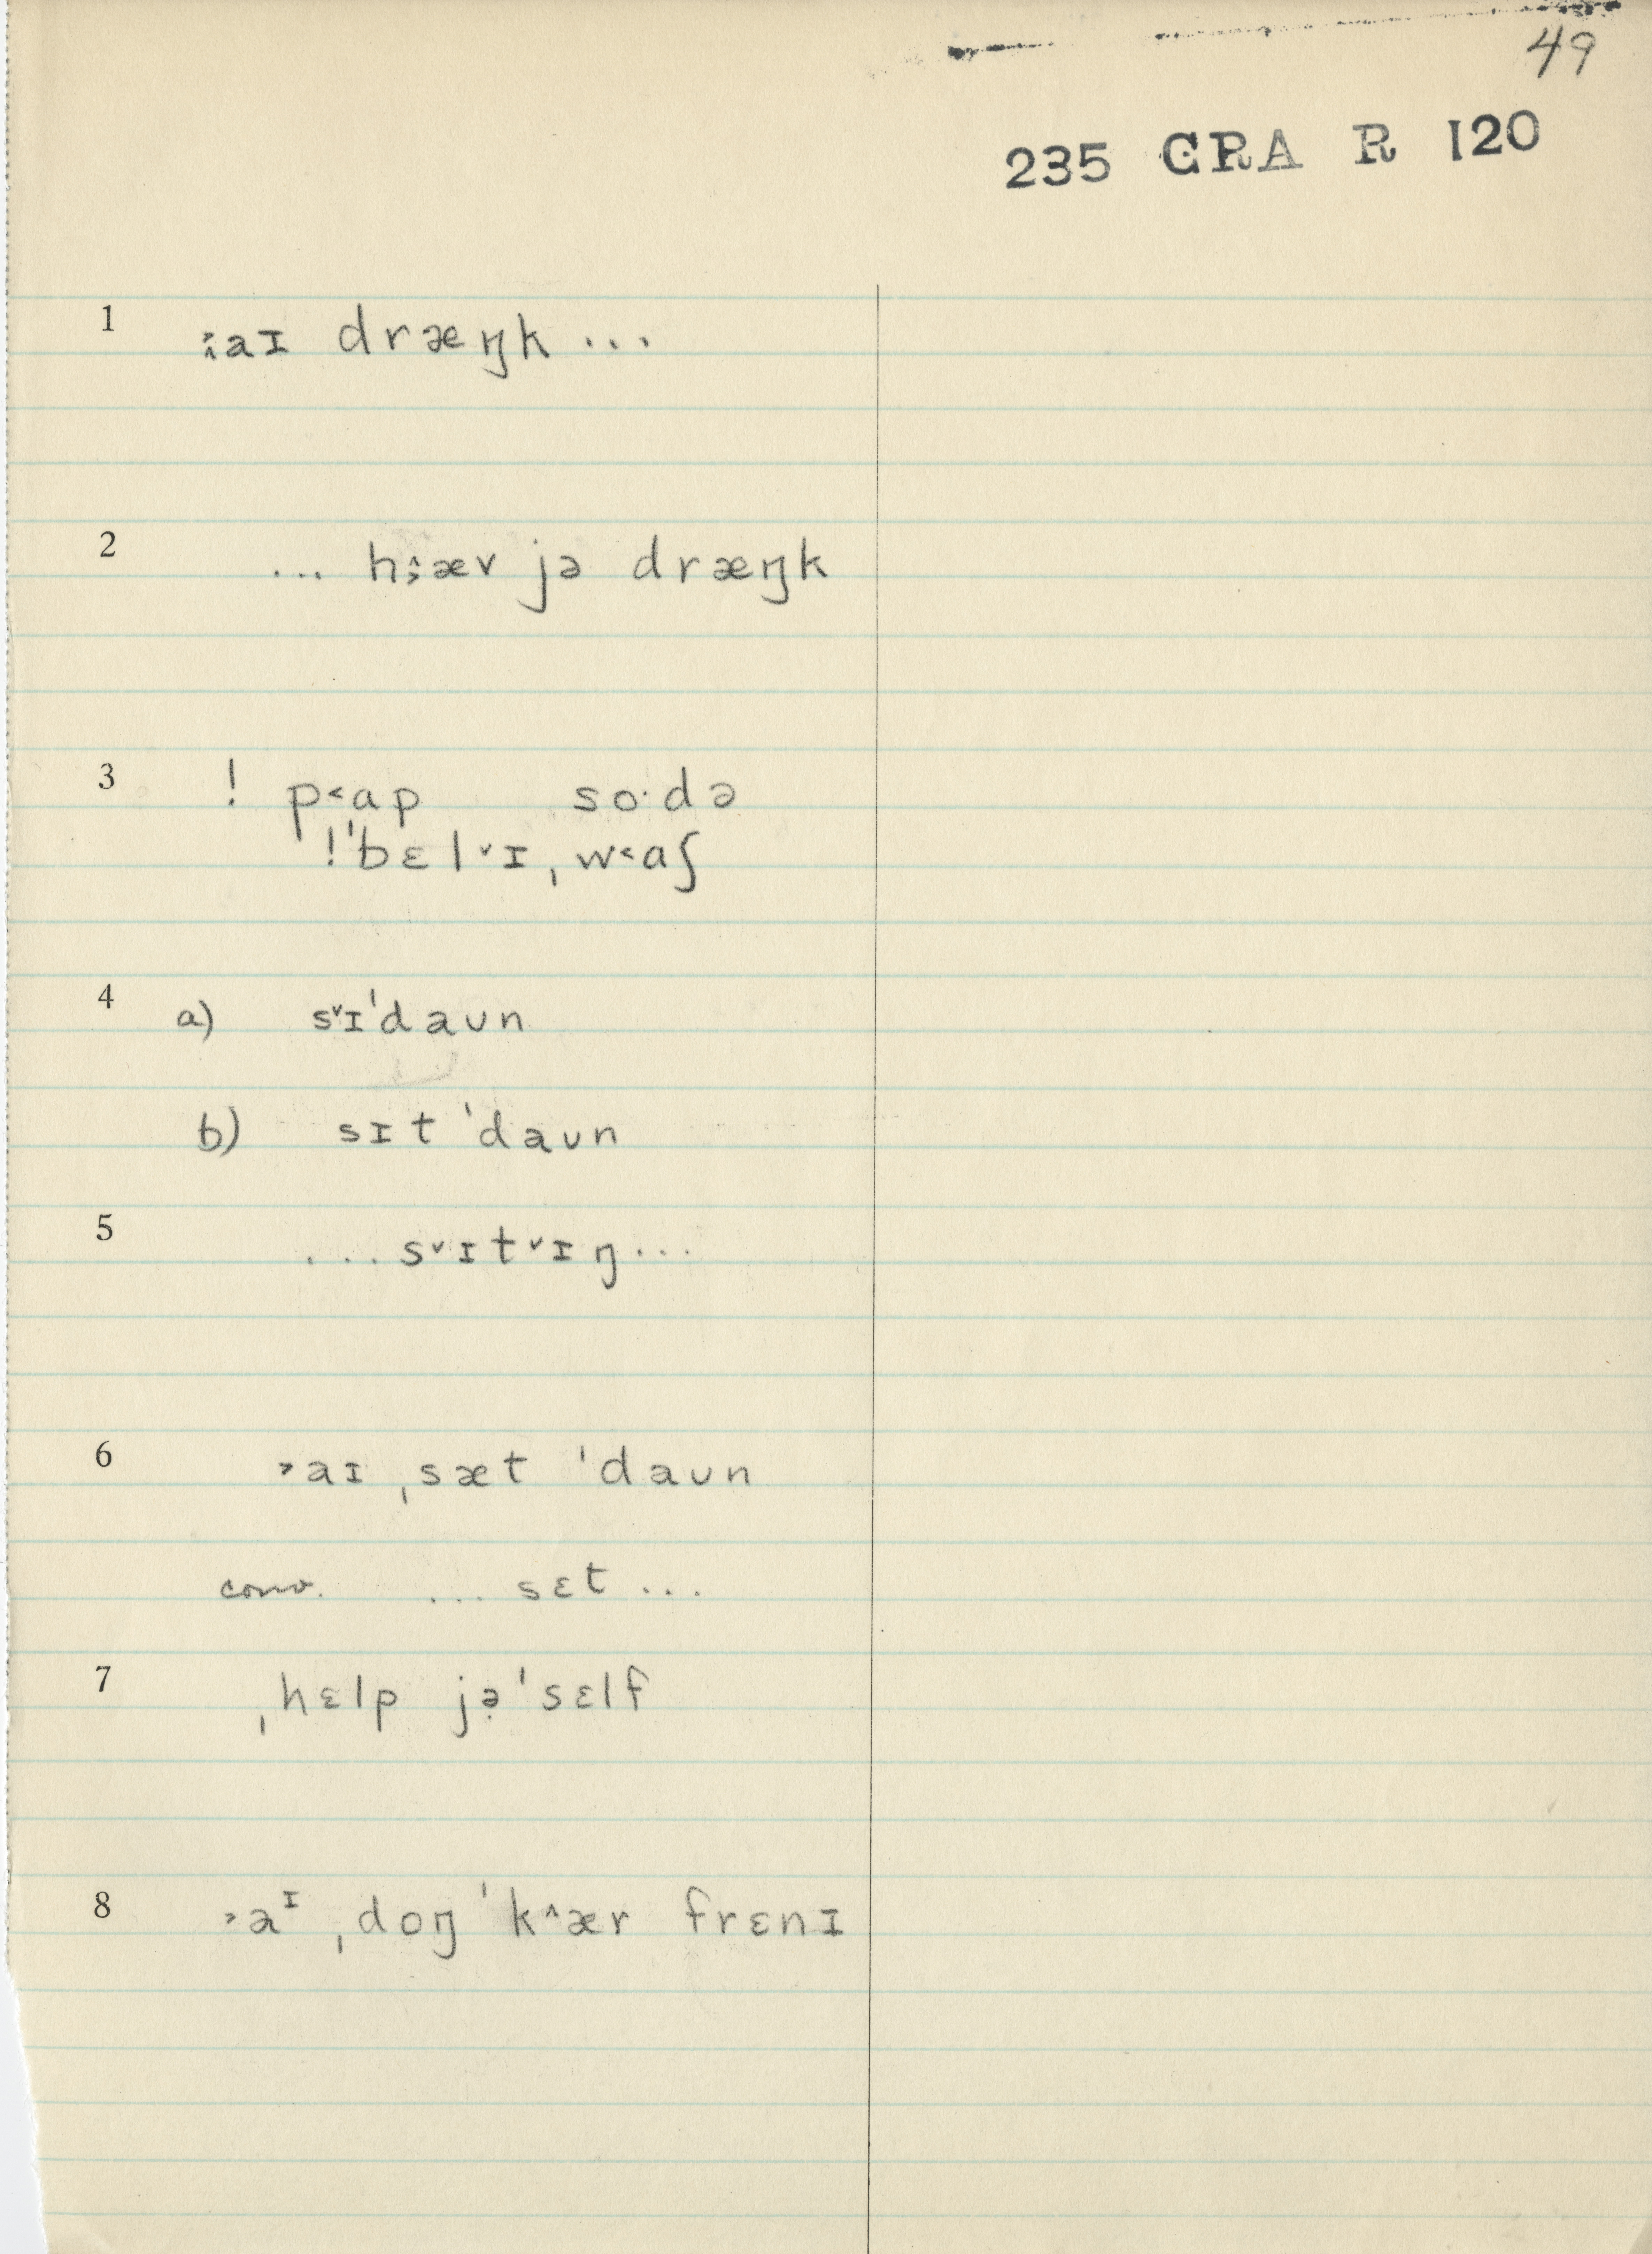 49
235 CRA R 120
1 ˃̭aɪ dræŋk ...
2 ... h˄̧æv jə dræŋk
3 ! p˂ɑp so·də
!ˈbɛl˅ɪˌw˂ɑʃ
4 a) s˅ɪˈdaʊn
b) sɪt ˈdaʊn
5 ... s˅ɪt˅ɪŋ ...
6 ˃aɪ ˌsæt ˈdaʊn
conv. ... sɛt ...
7 ˌhɛlp jə̣ˈsɛlf
8 ˃aᶦ ˌdoŋ ˈk˄ær frɛnɪ